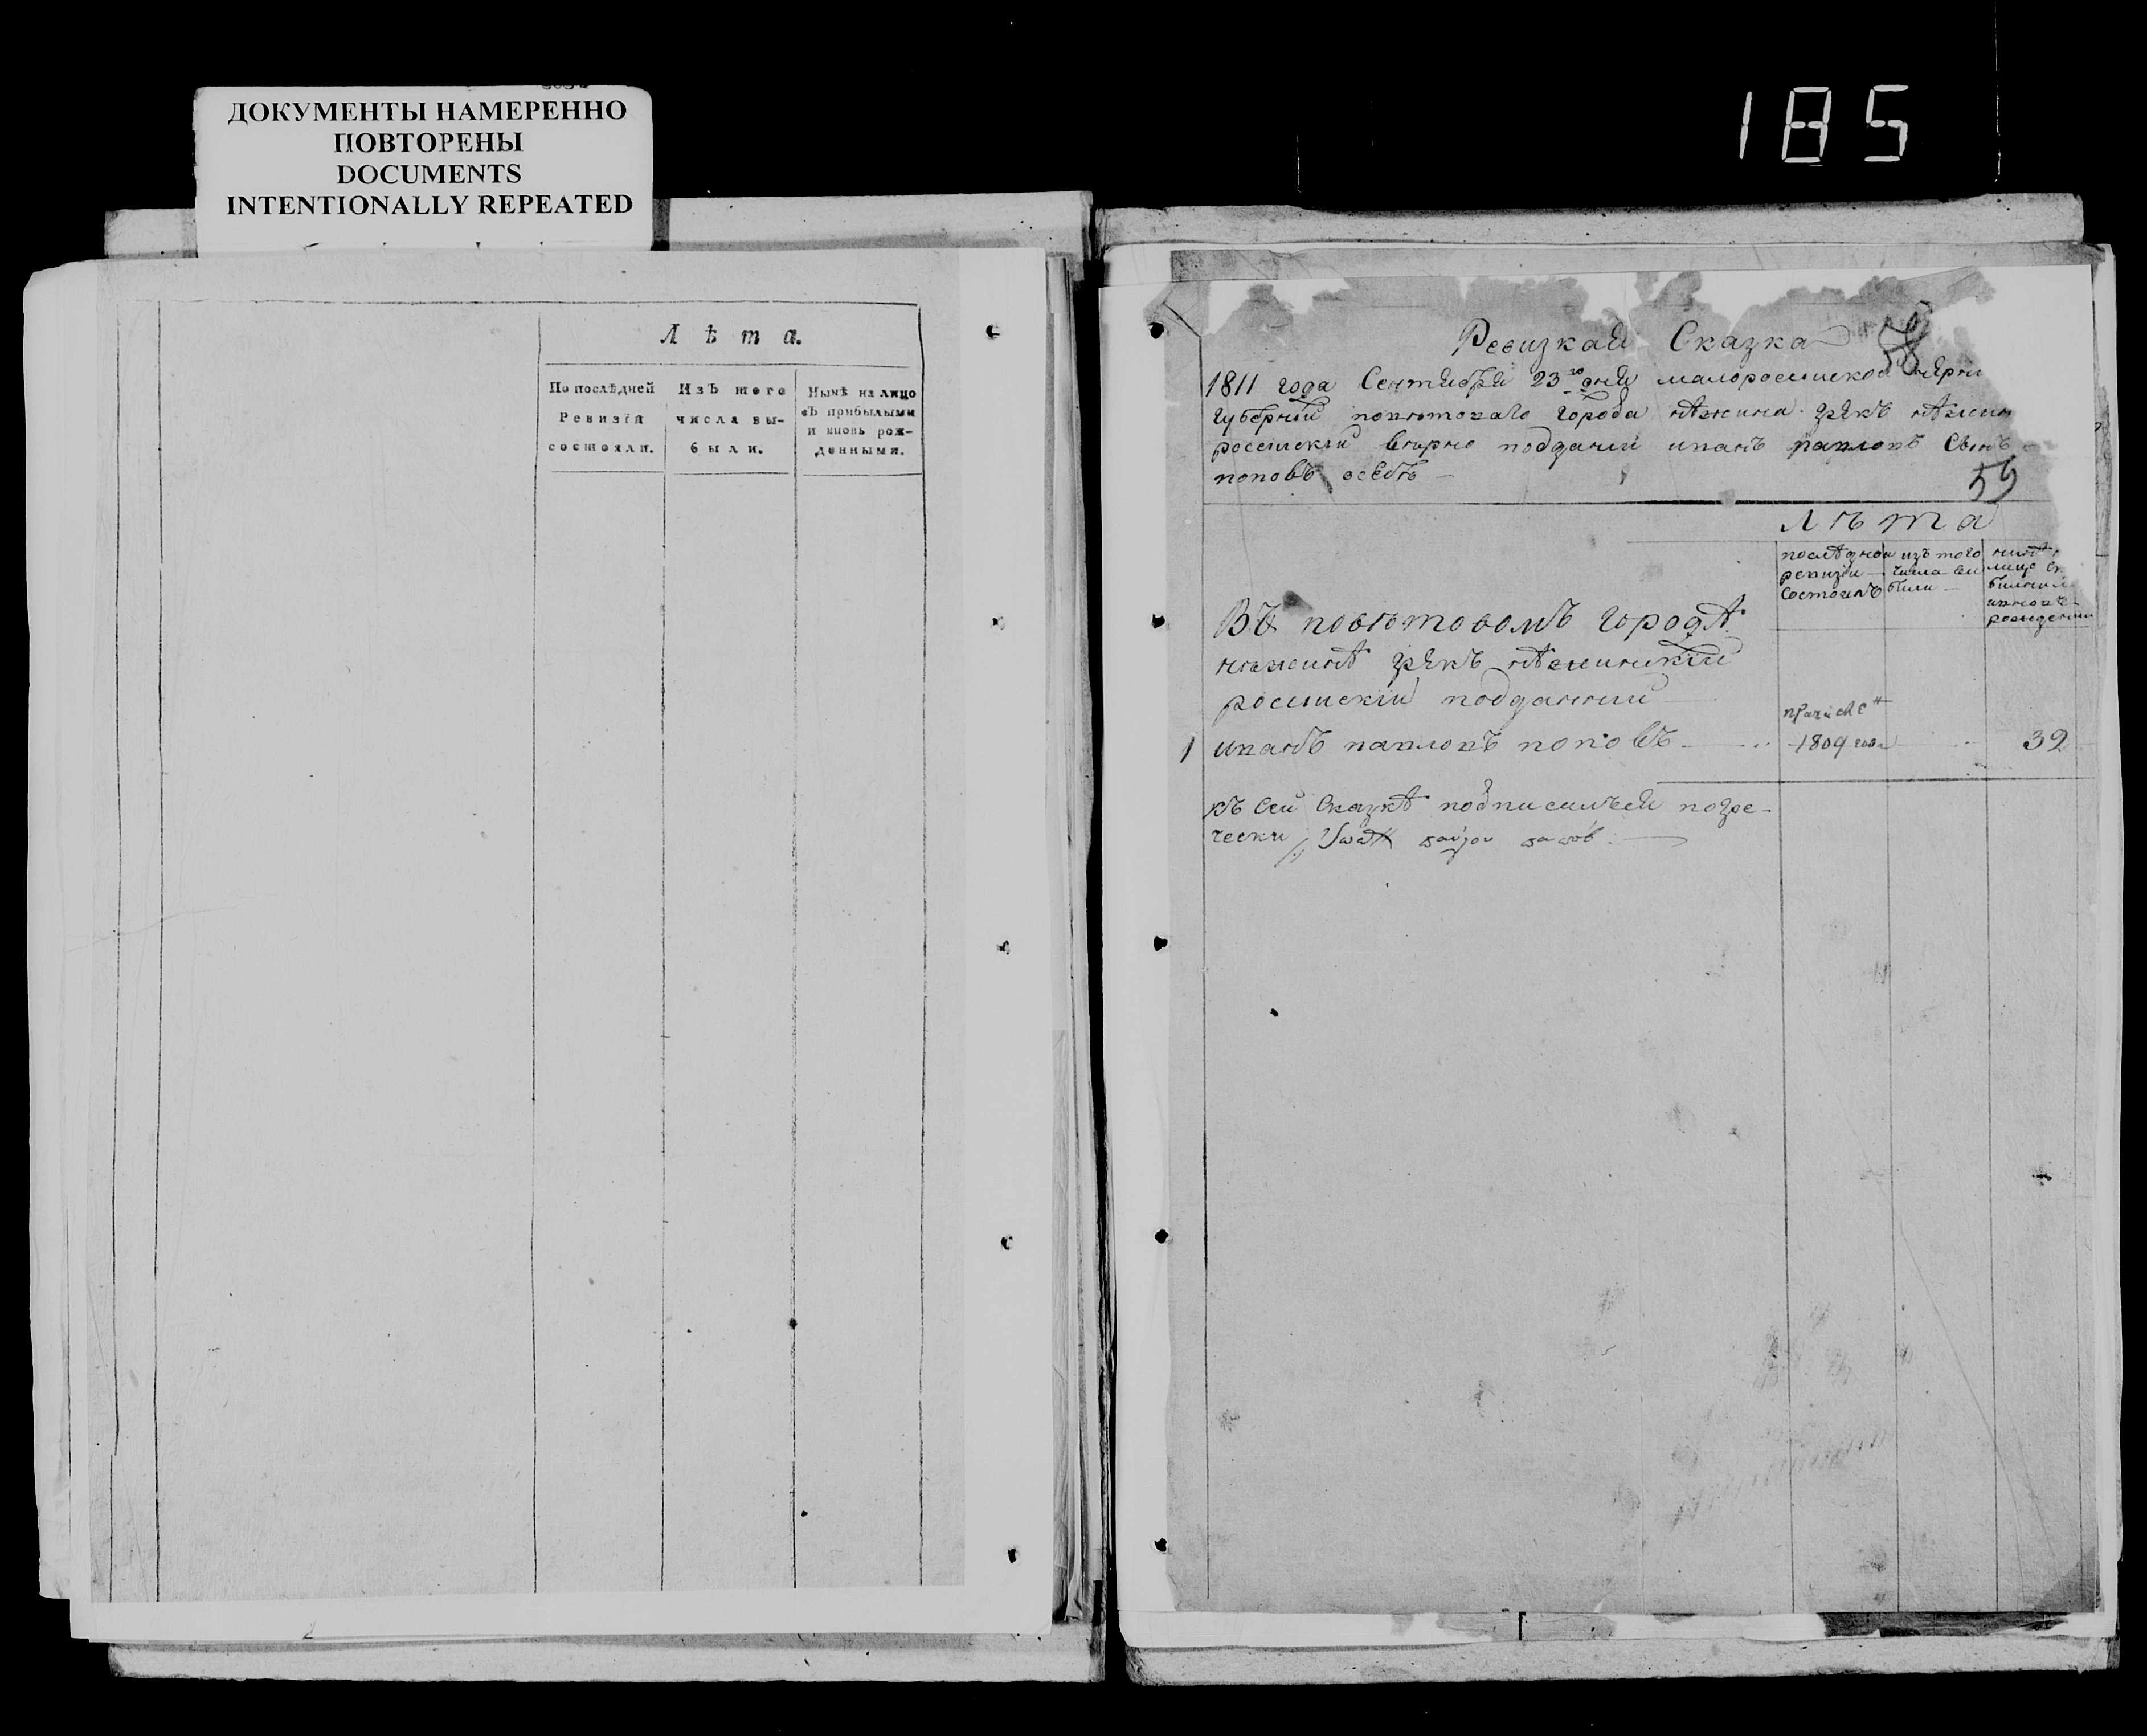 ДОКУМЕНТЫ НАМЕРЕННО
ПОВТОРЕНЫ
DOCUMENTS
INTENTIONALLY REPEATED
185
Лѣта.
По послѣдней
Ревизїи
состояли.
Изъ того
числа вы-
были.
Нынѣ на лицо
съ прибылыми
и вновь рож-
денными.
Ревизкая Сказка
1811 года Сентября 23го дня малоросииской
губернии повѣтоваго города нѣжина грѣкъ
росииский вѣрно подданий иванъ павловъ
поповъ
59
Лѣта
послѣдной
ревизии
состоялъ
изъ того
числа ви
били
Въ повѣтовомъ городѣ
нѣжинѣ грѣкъ нѣжинский
росииский подданний
1 иванъ павловъ поповъ
1809 года
32
къ сей сказкѣ подписался погре-
чески